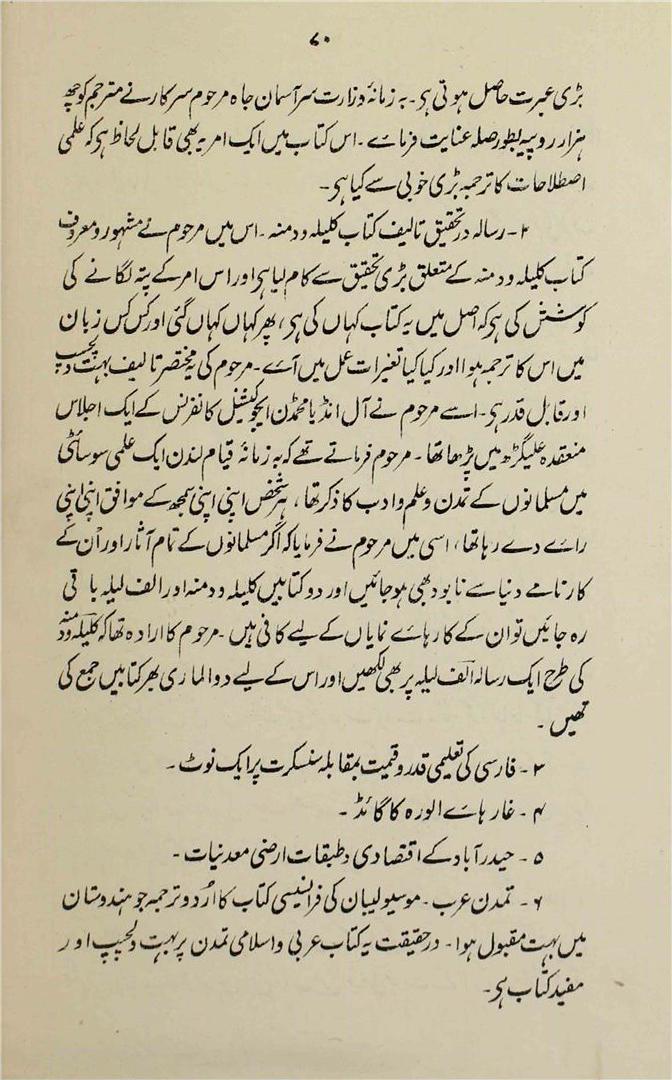 ۷۰
بڑی عبرت حاصل ہوتی ہی۔ بہ زمانۂ وزارت سر آسمان جاہ مرحوم سرکار نے مترجم کو چھ
ہزار روپیہ بطور صلہ عنایت فرمائے۔ اس کتاب میں ایک امر یہ بھی قابل لحاظ ہی کہ علمی
اصطلاحات کا ترجمہ بڑی خوبی سے کیا ہی۔
۲۔ رسالہ در تحقیق تالیف کتاب کلیلہ ودمنہ۔ اس میں مرحوم نے مشہور و معروف
کتاب کلیلہ ودمنہ کے متعلق بڑی تحقیق سے کام لیا ہی اور اس امر کے پتہ لگانے کی
کوشش کی ہی کہ اصل میں یہ کتاب کہاں کی ہی، پھر کہاں کہاں گئی اور کس کس زبان
میں اس کا ترجمہ ہوا اور کیا کیا تغیرات عمل میں آئے۔ مرحوم کی یہ مختصر تالیف بہت دلچسپ
اور قابل قدر ہی۔ اسے مرحوم نے آل انڈیا محمڈن ایجوکیشنل کانفرنس کے ایک اجلاس
منعقدہ علیگڑھ میں پڑھا تھا۔ مرحوم فرماتے تھے کہ بہ زمانۂ قیام لندن ایک علمی سوسائٹی
میں مسلمانوں کے تمدن و علم و ادب کا ذکر تھا، ہر شخص اپنی اپنی سمجھ کے موافق اپنی اپنی
رائے دے رہا تھا، اسی میں مرحوم نے فرمایا کہ اگر مسلمانوں کے تمام آثار اور اُن کے
کارنامے دنیا سے نابود بھی ہو جائیں اور دو کتابیں کلیلہ ودمنہ اور الف لیلہ باقی
رہ جائیں تو ان کے کارہائے نمایاں کے لیے کافی ہیں۔ مرحوم کا ارادہ تھا کہ کلیلہ ودمنہ
کی طرح ایک رسالہ الف لیلہ پر بھی لکھیں اور اس کے لیے دو الماری بھر کتابیں جمع کی
تھیں۔
۳۔ فارسی کی تعلیمی قدر و قیمت بمقابلہ سنسکرت پر ایک نوٹ۔
۴۔ غارہائے الورہ کا گائڈ۔
۵۔ حیدرآباد کے اقتصادی و طبقات ارضی معدنیات۔
۶۔ تمدن عرب۔ موسیولیبان کی فرانسیسی کتاب کا اُردو ترجمہ جو ہندوستان
میں بہت مقبول ہوا۔ درحقیقت یہ کتاب عربی و اسلامی تمدن پر بہت دلچسپ اور
مفید کتاب ہی۔